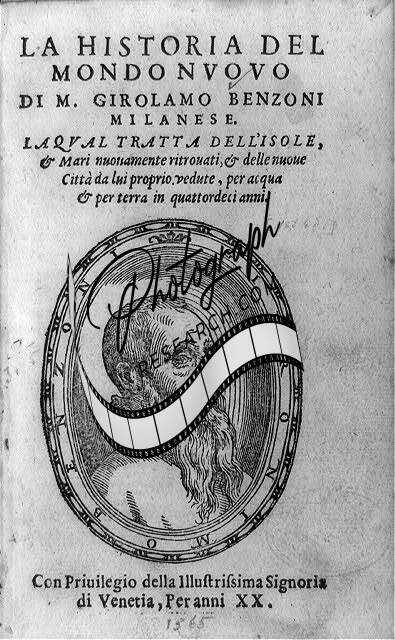 LA HISTORIA DEL
MONDO NVOVO
DI M. GIROLAMO BENZONI
MILANESE.
LAQVAL TRATTA DELL'ISOLE,
& Mari nuouamente ritrouati, & delle nuoue
Città da lui proprio vedute, per acqua
& per terra in quattordeci anni.
Photograph
RESEARCH CO
BENZONI
Con Priuilegio della Illustrissima Signoria
di Venetia, Per anni XX.
1565